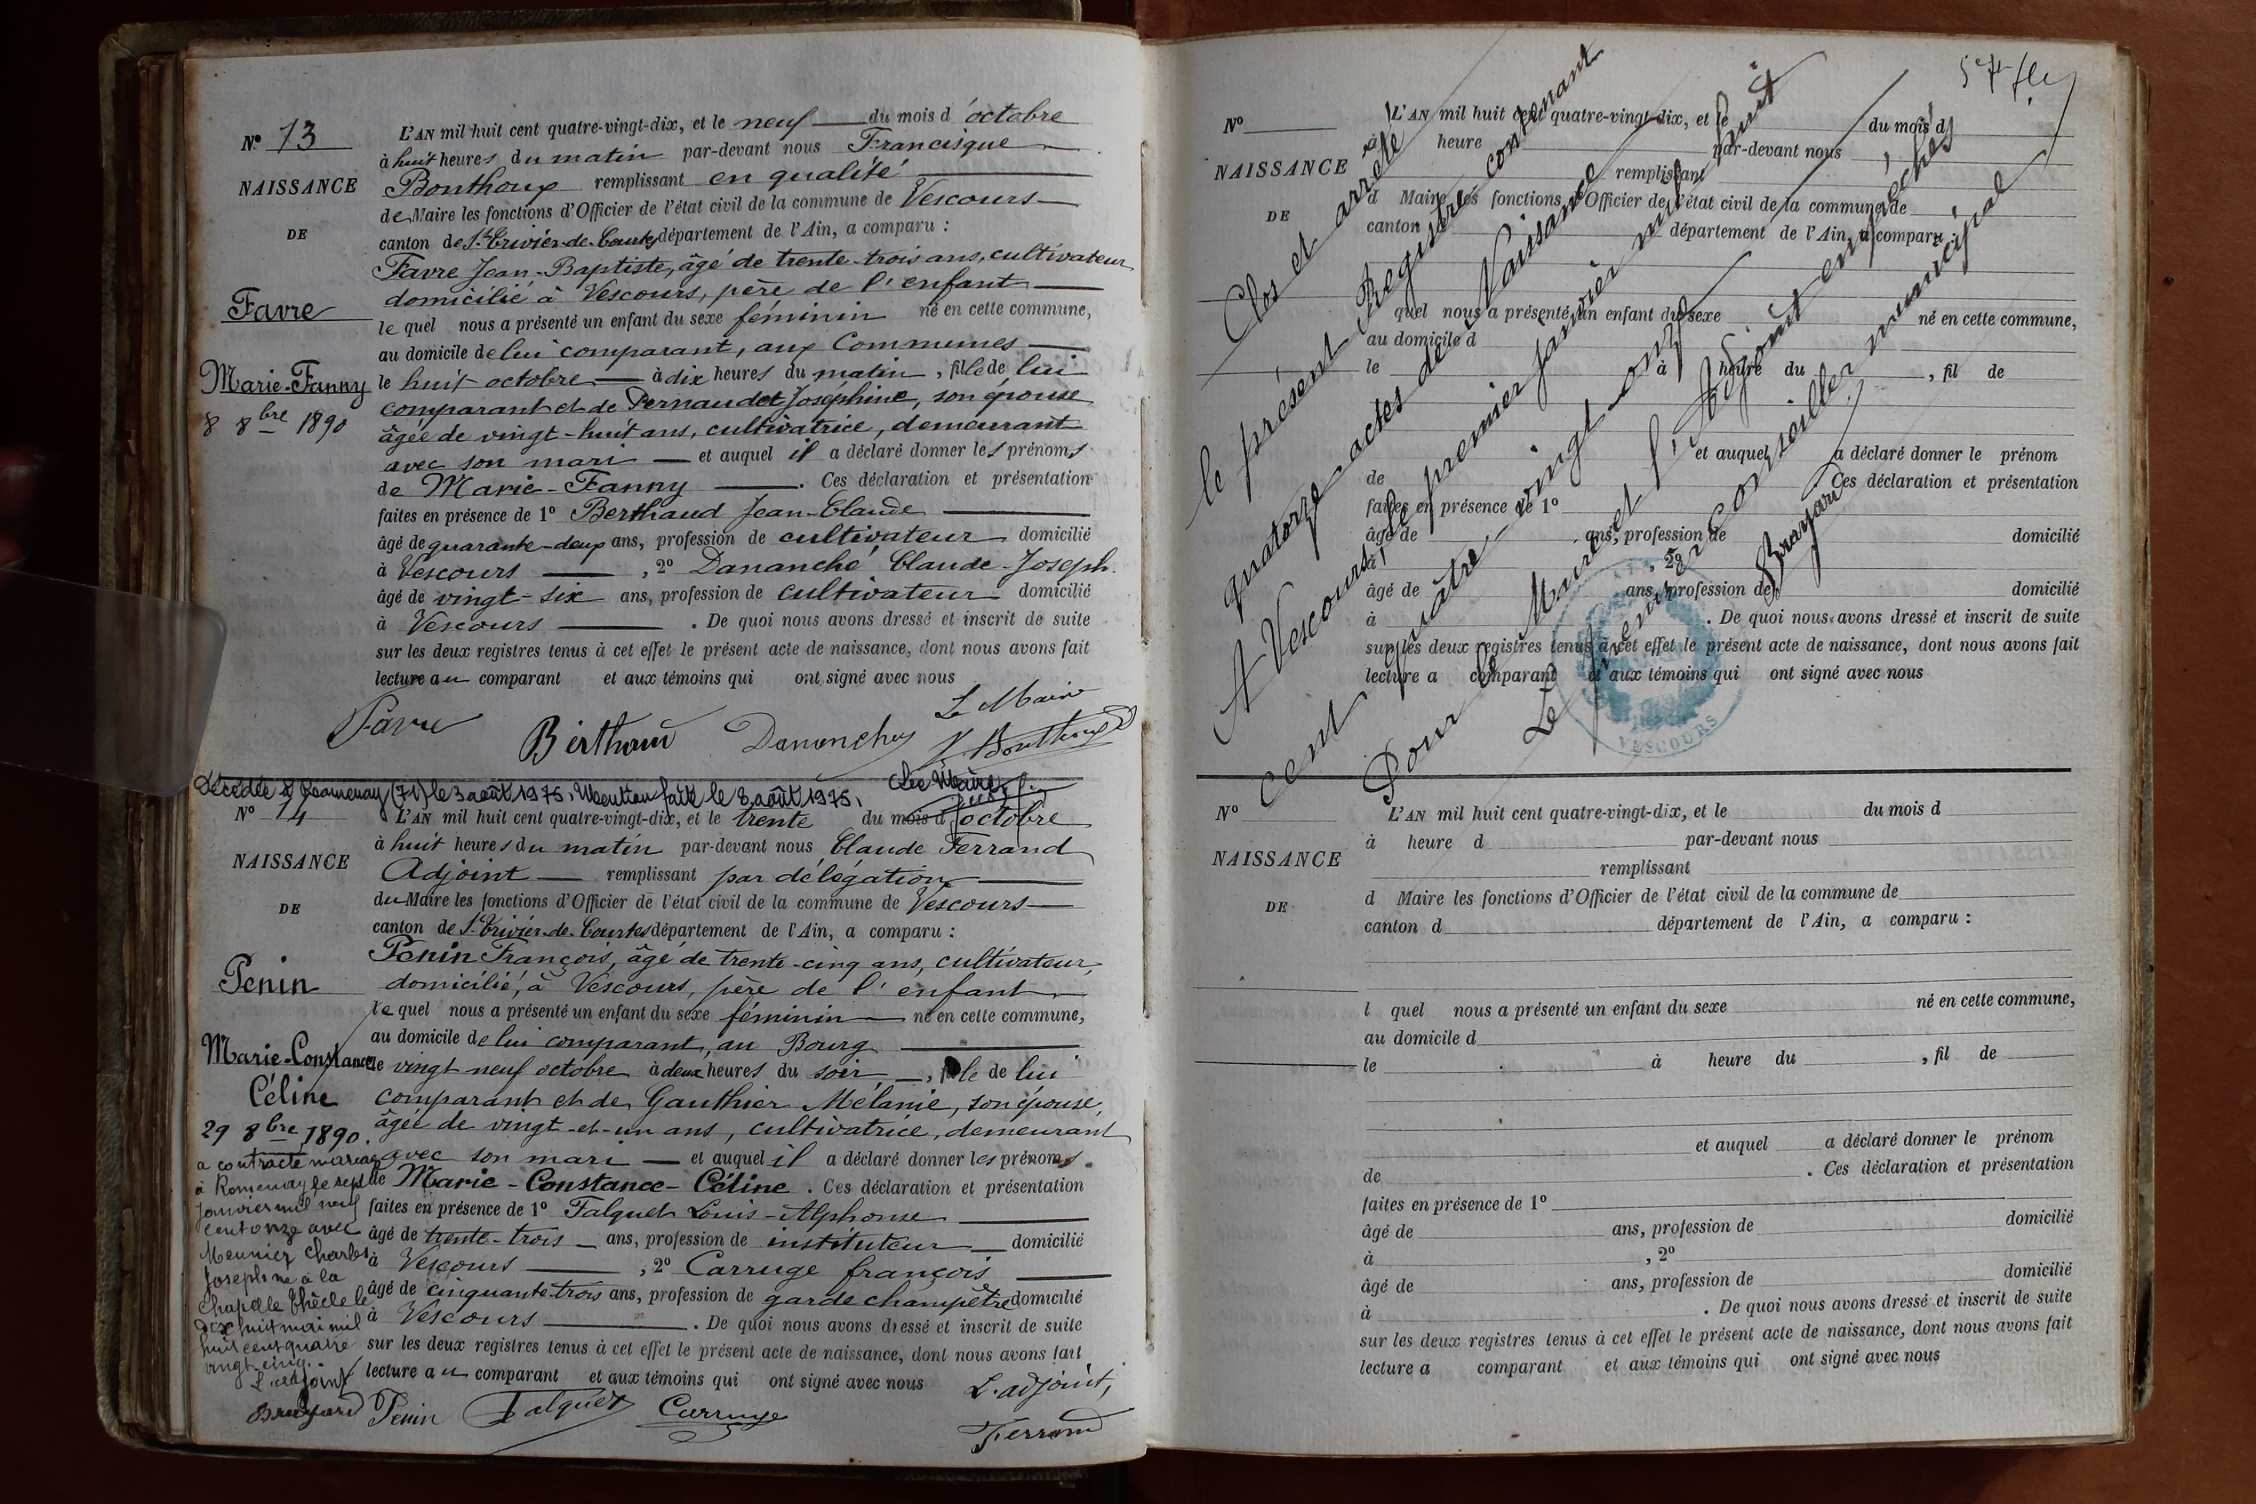 N° 13
NAISSANCE
DE
Favre
Marie-Fanny
8 8bre 1890
L'AN mil huit cent quatre-vingt-dix, et le neuf du mois d'octobre
à huit heures du matin par-devant nous Francisque
Bonthoux remplissant en qualité
de Maire les fonctions d'Officier de l'état civil de la commune de Vescours
canton de St Trivier-de-Courtes département de l'Ain, a comparu :
Favre Jean-Baptiste, âgé de trente-trois ans, cultivateur
domicilié à Vescours, père de l'enfant
le quel nous a présenté un enfant du sexe féminin né en cette commune,
au domicile de lui comparant, aux Communes
le huit octobre à dix heures du matin, fille de lui
comparant et de Pernaudet Joséphine, son épouse
âgée de vingt-huit ans, cultivatrice, demeurant
avec son mari et auquel il a déclaré donner les prénoms
de Marie-Fanny. Ces déclaration et présentation
faites en présence de 1° Berthaud Jean-Claude
âgé de quarante-deux ans, profession de cultivateur domicilié
à Vescours, 2° Dananché Claude-Joseph.
âgé de vingt-six ans, profession de cultivateur domicilié
à Vescours. De quoi nous avons dressé et inscrit de suite
sur les deux registres tenus à cet effet le présent acte de naissance, dont nous avons fait
lecture au comparant et aux témoins qui ont signé avec nous
Le Maire
Favre Berthaud Dananché Bonthoux
Décédée à Romenay (71) le 3 août 1975. Mention faite le 8 août 1975.
Le Maire,
N° 14
NAISSANCE
DE
Penin
Marie-Constance
Céline
29 8bre 1890.
a contracté mariage
à Romenay le sept
janvier mil neuf
cent onze avec
Meunier Charles
Joseph né à la
Chapelle Thècle le
dix huit mai mil
huit cent quatre
vingt cinq.
L'adjoint
Brayard
L'AN mil huit cent quatre-vingt-dix, et le trente du mois d'octobre
à huit heures du matin par-devant nous Claude Ferrand
Adjoint remplissant par délégation
du Maire les fonctions d'Officier de l'état civil de la commune de Vescours
canton de St Trivier-de-Courtes département de l'Ain, a comparu :
Penin François, âgé de trente-cinq ans, cultivateur,
domicilié, à Vescours, père de l'enfant
le quel nous a présenté un enfant du sexe féminin né en cette commune,
au domicile de lui comparant, au Bourg
le vingt neuf octobre à deux heures du soir, fille de lui
comparant et de Gauthier Mélanie, son épouse,
âgée de vingt-et-un ans, cultivatrice, demeurant
avec son mari et auquel il a déclaré donner les prénoms
de Marie-Constance-Céline. Ces déclaration et présentation
faites en présence de 1° Falquet Louis-Alphonse
âgé de trente-trois ans, profession de instituteur domicilié
à Vescours, 2° Carruge françois
âgé de cinquante-trois ans, profession de garde champêtre domicilié
à Vescours. De quoi nous avons dressé et inscrit de suite
sur les deux registres tenus à cet effet le présent acte de naissance, dont nous avons fait
lecture au comparant et aux témoins qui ont signé avec nous
L'adjoint,
Penin Falquet Carruge Ferrand
N°
NAISSANCE
DE
L'AN mil huit cent quatre-vingt-dix, et le du mois d
à heure par-devant nous
remplissant
d Maire les fonctions d'Officier de l'état civil de la commune de
canton d département de l'Ain, a comparu :
quel nous a présenté un enfant du sexe né en cette commune,
au domicile d
le à heure du , fil de
et auquel a déclaré donner le prénom
de Ces déclaration et présentation
faites en présence de 1°
âgé de ans, profession de domicilié
à , 2°
âgé de ans, profession de domicilié
à . De quoi nous avons dressé et inscrit de suite
sur les deux registres tenus à cet effet le présent acte de naissance, dont nous avons fait
lecture a comparant et aux témoins qui ont signé avec nous
Clos et arrêté
le présent Registre contenant
quatorze actes de Naissance
A Vescours, le premier janvier mil huit
cent quatre-vingt-onze
Pour le Maire et l'Adjoint empêchés
Le premier conseiller municipal
Brayard
VESCOURS
N°
NAISSANCE
DE
L'AN mil huit cent quatre-vingt-dix, et le du mois d
à heure d par-devant nous
remplissant
d Maire les fonctions d'Officier de l'état civil de la commune de
canton d département de l'Ain, a comparu :
l quel nous a présenté un enfant du sexe né en cette commune,
au domicile d
le à heure du , fil de
et auquel a déclaré donner le prénom
de . Ces déclaration et présentation
faites en présence de 1°
âgé de ans, profession de domicilié
à , 2°
âgé de ans, profession de domicilié
à . De quoi nous avons dressé et inscrit de suite
sur les deux registres tenus à cet effet le présent acte de naissance, dont nous avons fait
lecture a comparant et aux témoins qui ont signé avec nous